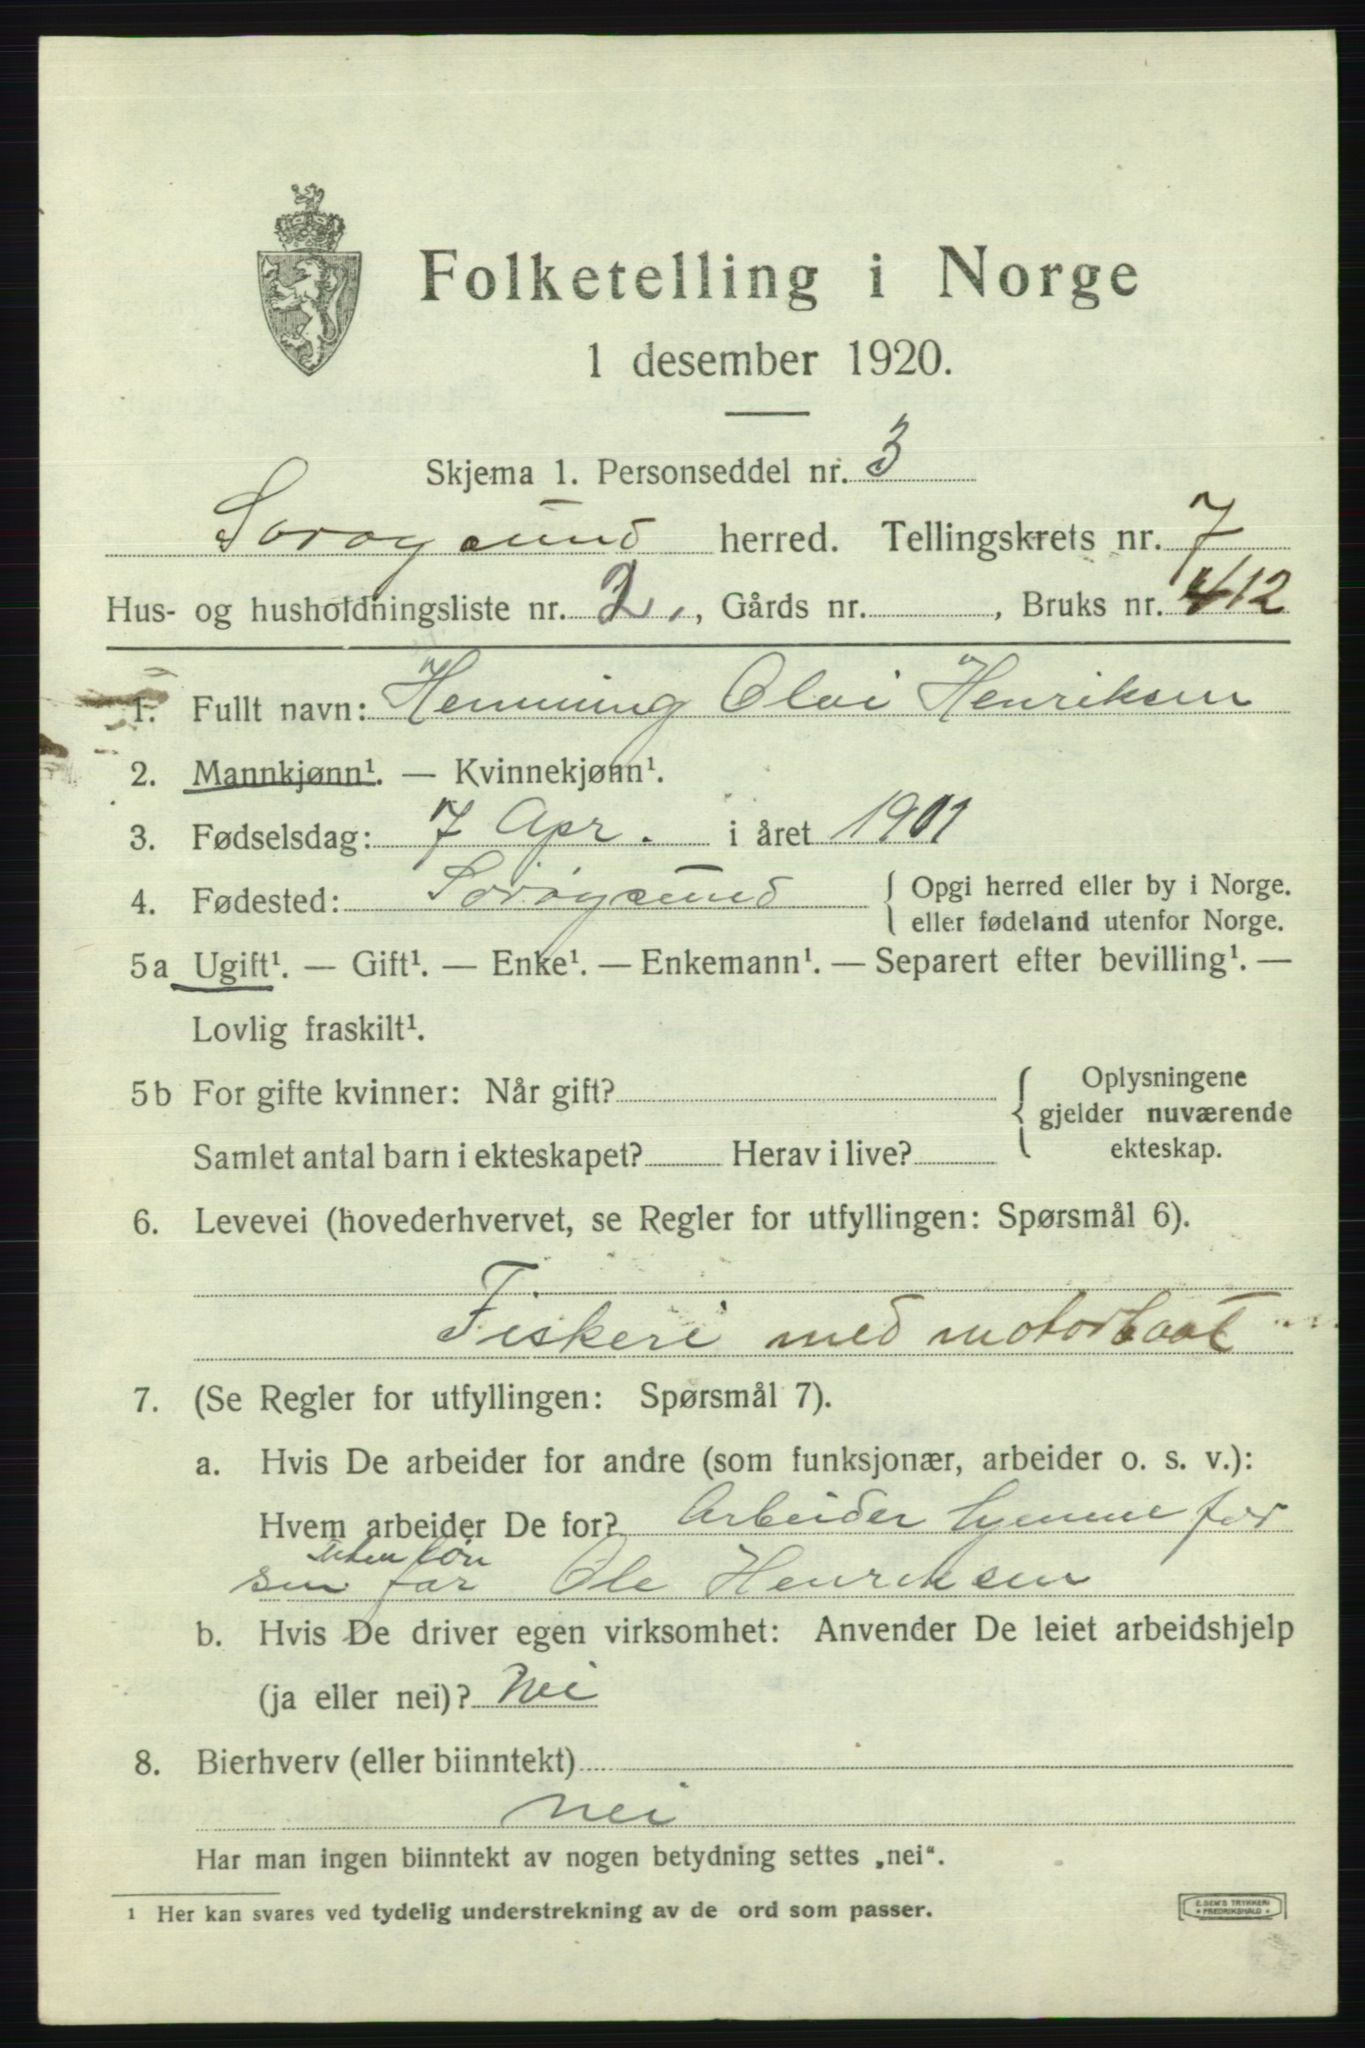 Folketelling i Norge
1 desember 1920.
Skjema 1. Personseddel nr. 3
Sørøysund herred. Tellingskrets nr. 7
Hus- og husholdningsliste nr. 2., Gårds nr. , Bruks nr. 12
1. Fullt navn: Hemming Olai Henriksen
2. Mannkjønn¹. — Kvinnekjønn¹.
3. Fødselsdag: 7 Apr. i året 1901
4. Fødested: Sørøysund { Opgi herred eller by i Norge.
eller fødeland utenfor Norge.
5a Ugift¹. — Gift¹. — Enke¹. — Enkemann¹. — Separert efter bevilling¹. —
Lovlig fraskilt¹.
5b For gifte kvinner: Når gift? { Oplysningene
gjelder nuværende
Samlet antal barn i ekteskapet? Herav i live? ekteskap.
6. Levevei (hovederhvervet, se Regler for utfyllingen: Spørsmål 6).
Fiskeri med motorbaat
7. (Se Regler for utfyllingen: Spørsmål 7).
a. Hvis De arbeider for andre (som funksjonær, arbeider o. s. v.):
Hvem arbeider De for? Arbeider hjemme for
uten løn
sin far Ole Henriksen
b. Hvis De driver egen virksomhet: Anvender De leiet arbeidshjelp
(ja eller nei)? Nei
8. Bierhverv (eller biinntekt)
nei
Har man ingen biinntekt av nogen betydning settes „nei“.
¹ Her kan svares ved tydelig understrekning av de ord som passer.
E. SEM'S TRYKKERI
* FREDRIKSHALD *